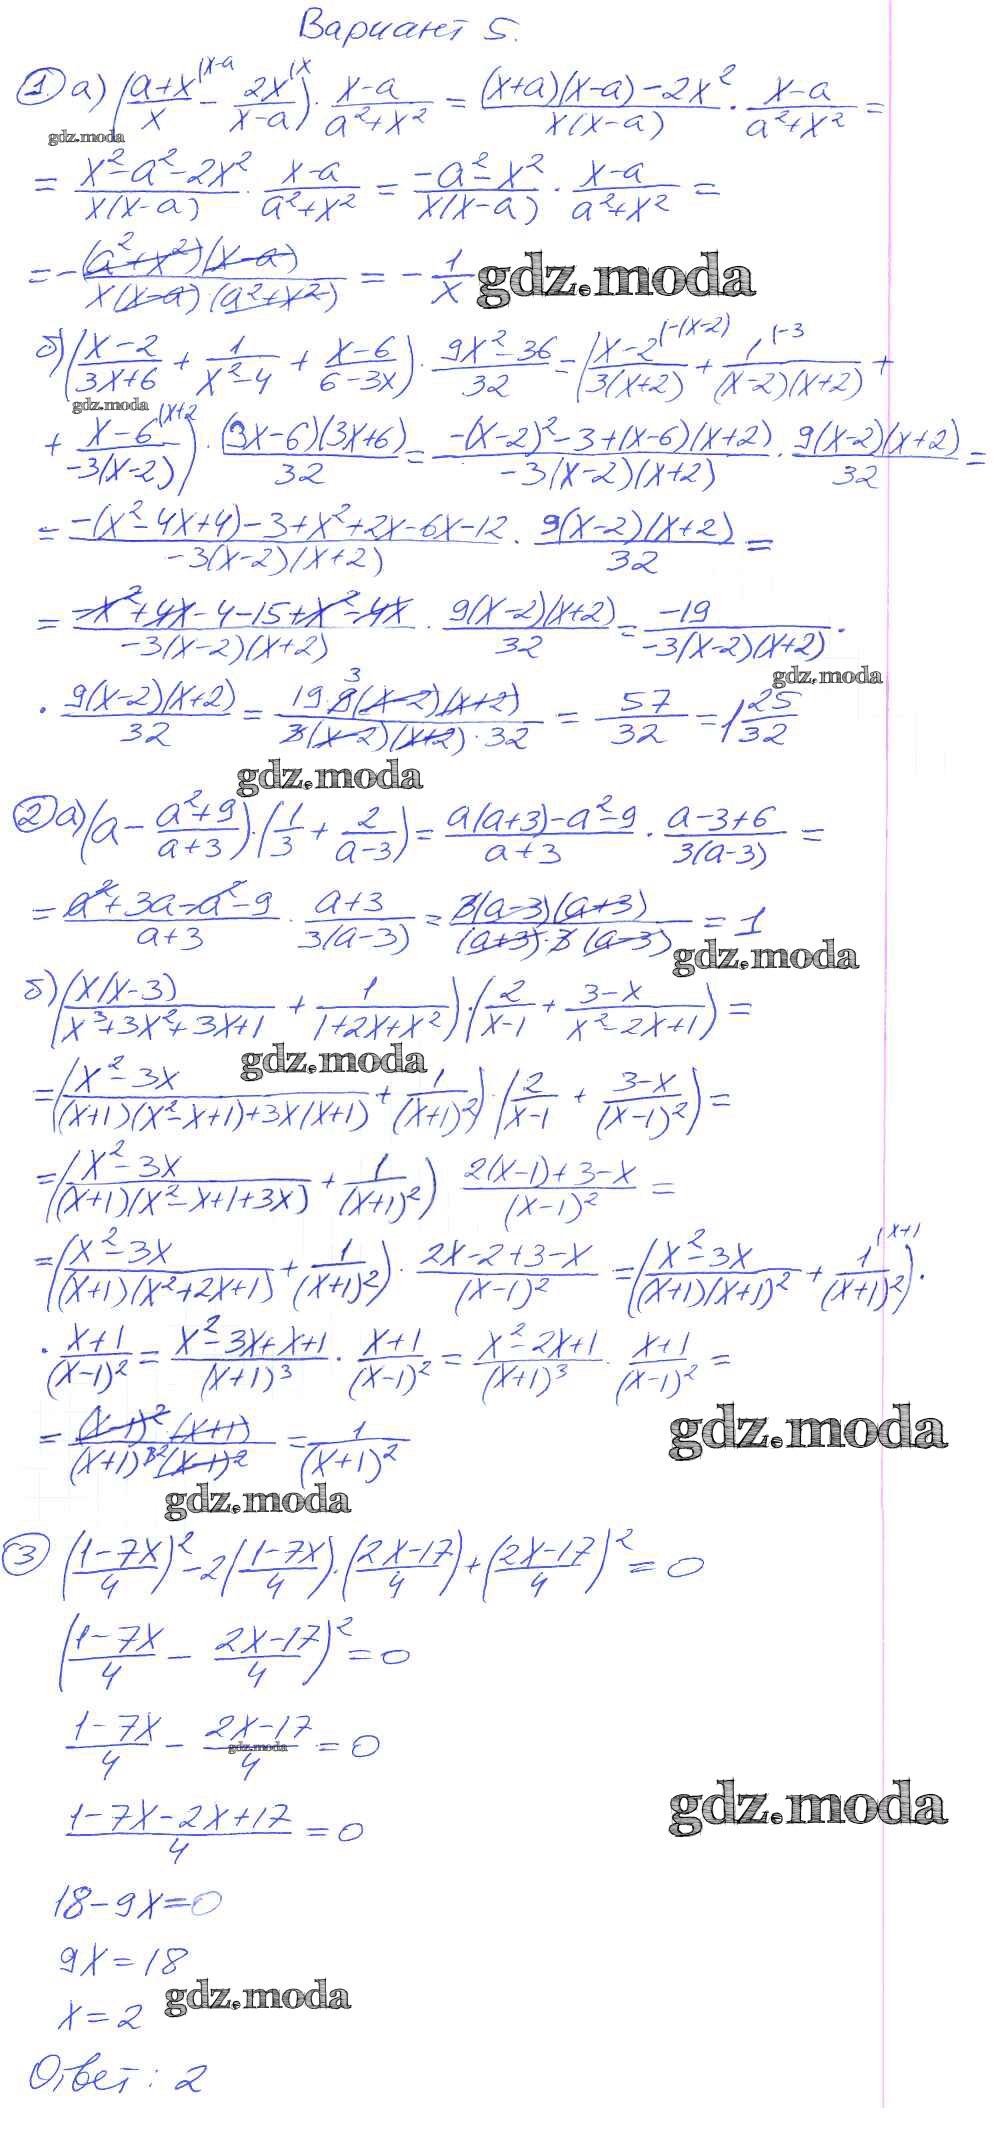 Вариант 5.
① а) ((a+x)/x ^(x-a - 2x/(x-a) ^(x) · (x-a)/(a²+x²) = ((x+a)(x-a)-2x²)/(x(x-a)) · (x-a)/(a²+x²) =
gdz.moda
= (x²-a²-2x²)/(x(x-a)) · (x-a)/(a²+x²) = (-a²-x²)/(x(x-a)) · (x-a)/(a²+x²) =
= -((a²+x²)(x-a))/(x(x-a)(a²+x²)) = -1/x gdz.moda
б) ((x-2)/(3x+6) + 1/(x²-4) + (x-6)/(6-3x)) · (9x²-36)/32 = ((x-2)/(3(x+2)) ^(-(x-2) + 1/((x-2)(x+2)) ^(-3 +
gdz.moda
+ (x-6)/(-3(x-2)) ^(x+2) · ((3x-6)(3x+6))/32 = (-(x-2)²-3+(x-6)(x+2))/(-3(x-2)(x+2)) · (9(x-2)(x+2))/32 =
= (-(x²-4x+4)-3+x²+2x-6x-12)/(-3(x-2)(x+2)) · (9(x-2)(x+2))/32 =
= (-x²+4x-4-15+x²-4x)/(-3(x-2)(x+2)) · (9(x-2)(x+2))/32 = -19/(-3(x-2)(x+2)) ·
gdz.moda
· (9(x-2)(x+2))/32 = (19·9 ³(x-2)(x+2))/(3(x-2)(x+2)·32) = 57/32 = 1 25/32
gdz.moda
② а) (a - (a²+9)/(a+3)) · (1/3 + 2/(a-3)) = (a(a+3)-a²-9)/(a+3) · (a-3+6)/(3(a-3)) =
= (a²+3a-a²-9)/(a+3) · (a+3)/(3(a-3)) = (3(a-3)(a+3))/((a+3)·3(a-3)) = 1
gdz.moda
б) ((x(x-3))/(x³+3x²+3x+1) + 1/(1+2x+x²)) · (2/(x-1) + (3-x)/(x²-2x+1)) =
gdz.moda
= ((x²-3x)/((x+1)(x²-x+1)+3x(x+1)) + 1/(x+1)²) · (2/(x-1) + (3-x)/(x-1)²) =
= ((x²-3x)/((x+1)(x²-x+1+3x)) + 1/(x+1)²) (2(x-1)+3-x)/(x-1)² =
= ((x²-3x)/((x+1)(x²+2x+1)) + 1/(x+1)²) · (2x-2+3-x)/(x-1)² = ((x²-3x)/((x+1)(x+1)²) + 1/(x+1)² ^(x+1) ·
· (x+1)/(x-1)² = (x²-3x+x+1)/(x+1)³ · (x+1)/(x-1)² = (x²-2x+1)/(x+1)³ · (x+1)/(x-1)² =
gdz.moda
= ((x-1)²·(x+1))/((x+1)³ ²(x-1)²) = 1/(x+1)²
gdz.moda
③ ((1-7x)/4)² - 2((1-7x)/4) · ((2x-17)/4) + ((2x-17)/4)² = 0
((1-7x)/4 - (2x-17)/4)² = 0
(1-7x)/4 - (2x-17)/4 = 0
gdz.moda
gdz.moda
(1-7x-2x+17)/4 = 0
18-9x=0
9x=18
gdz.moda
x=2
Ответ: 2